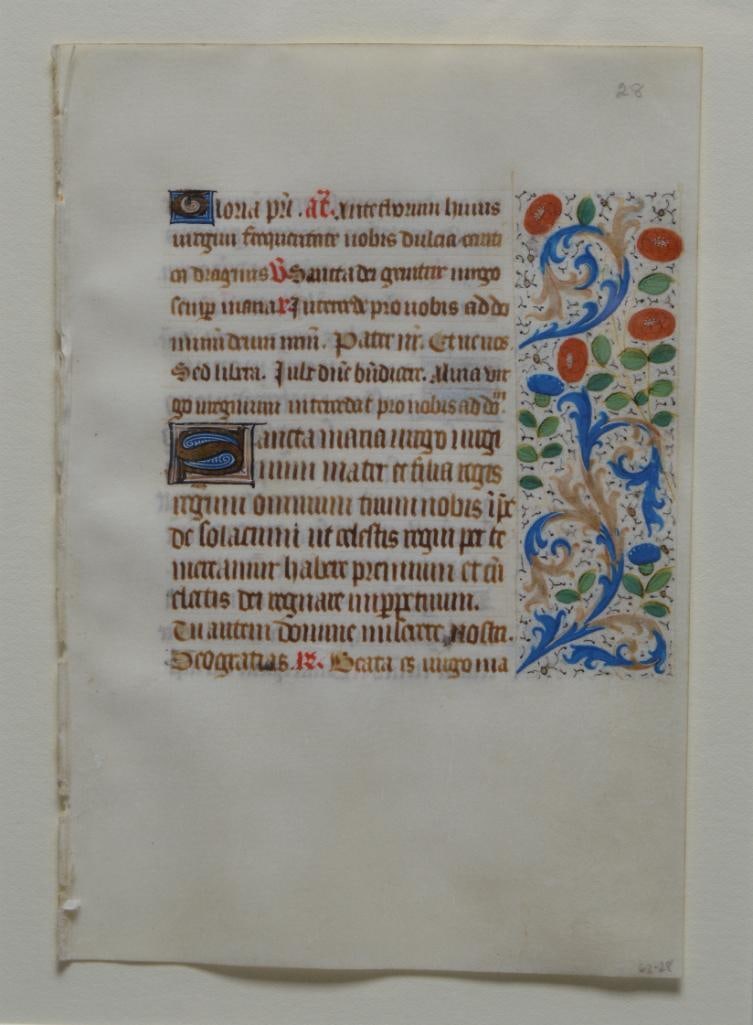 28
Gloria pri. añ. Ante thorum huius
uirginis frequentate nobis dulcia canti
ca dragmis V Sancta dei genitrix uirgo
semper maria R Intercede pro nobis ad do
minum deum nrm̃. Pater nr̃. Et ne nos
Sed libera. Iube dne bñdicere. Alma uir
go uirginum intercedat pro nobis ad dom̃.
Sancta maria uirgo uirgi
num mater et filia regis
regum omnium tuum nobis ip̃e
de solacium ut celestis regni per te
mereamur habere premium et cũ
electis dei regnare imperpetuum.
Tu autem domine miserere nostri.
Deo gratias. R. Beata es uirgo ma
62-28